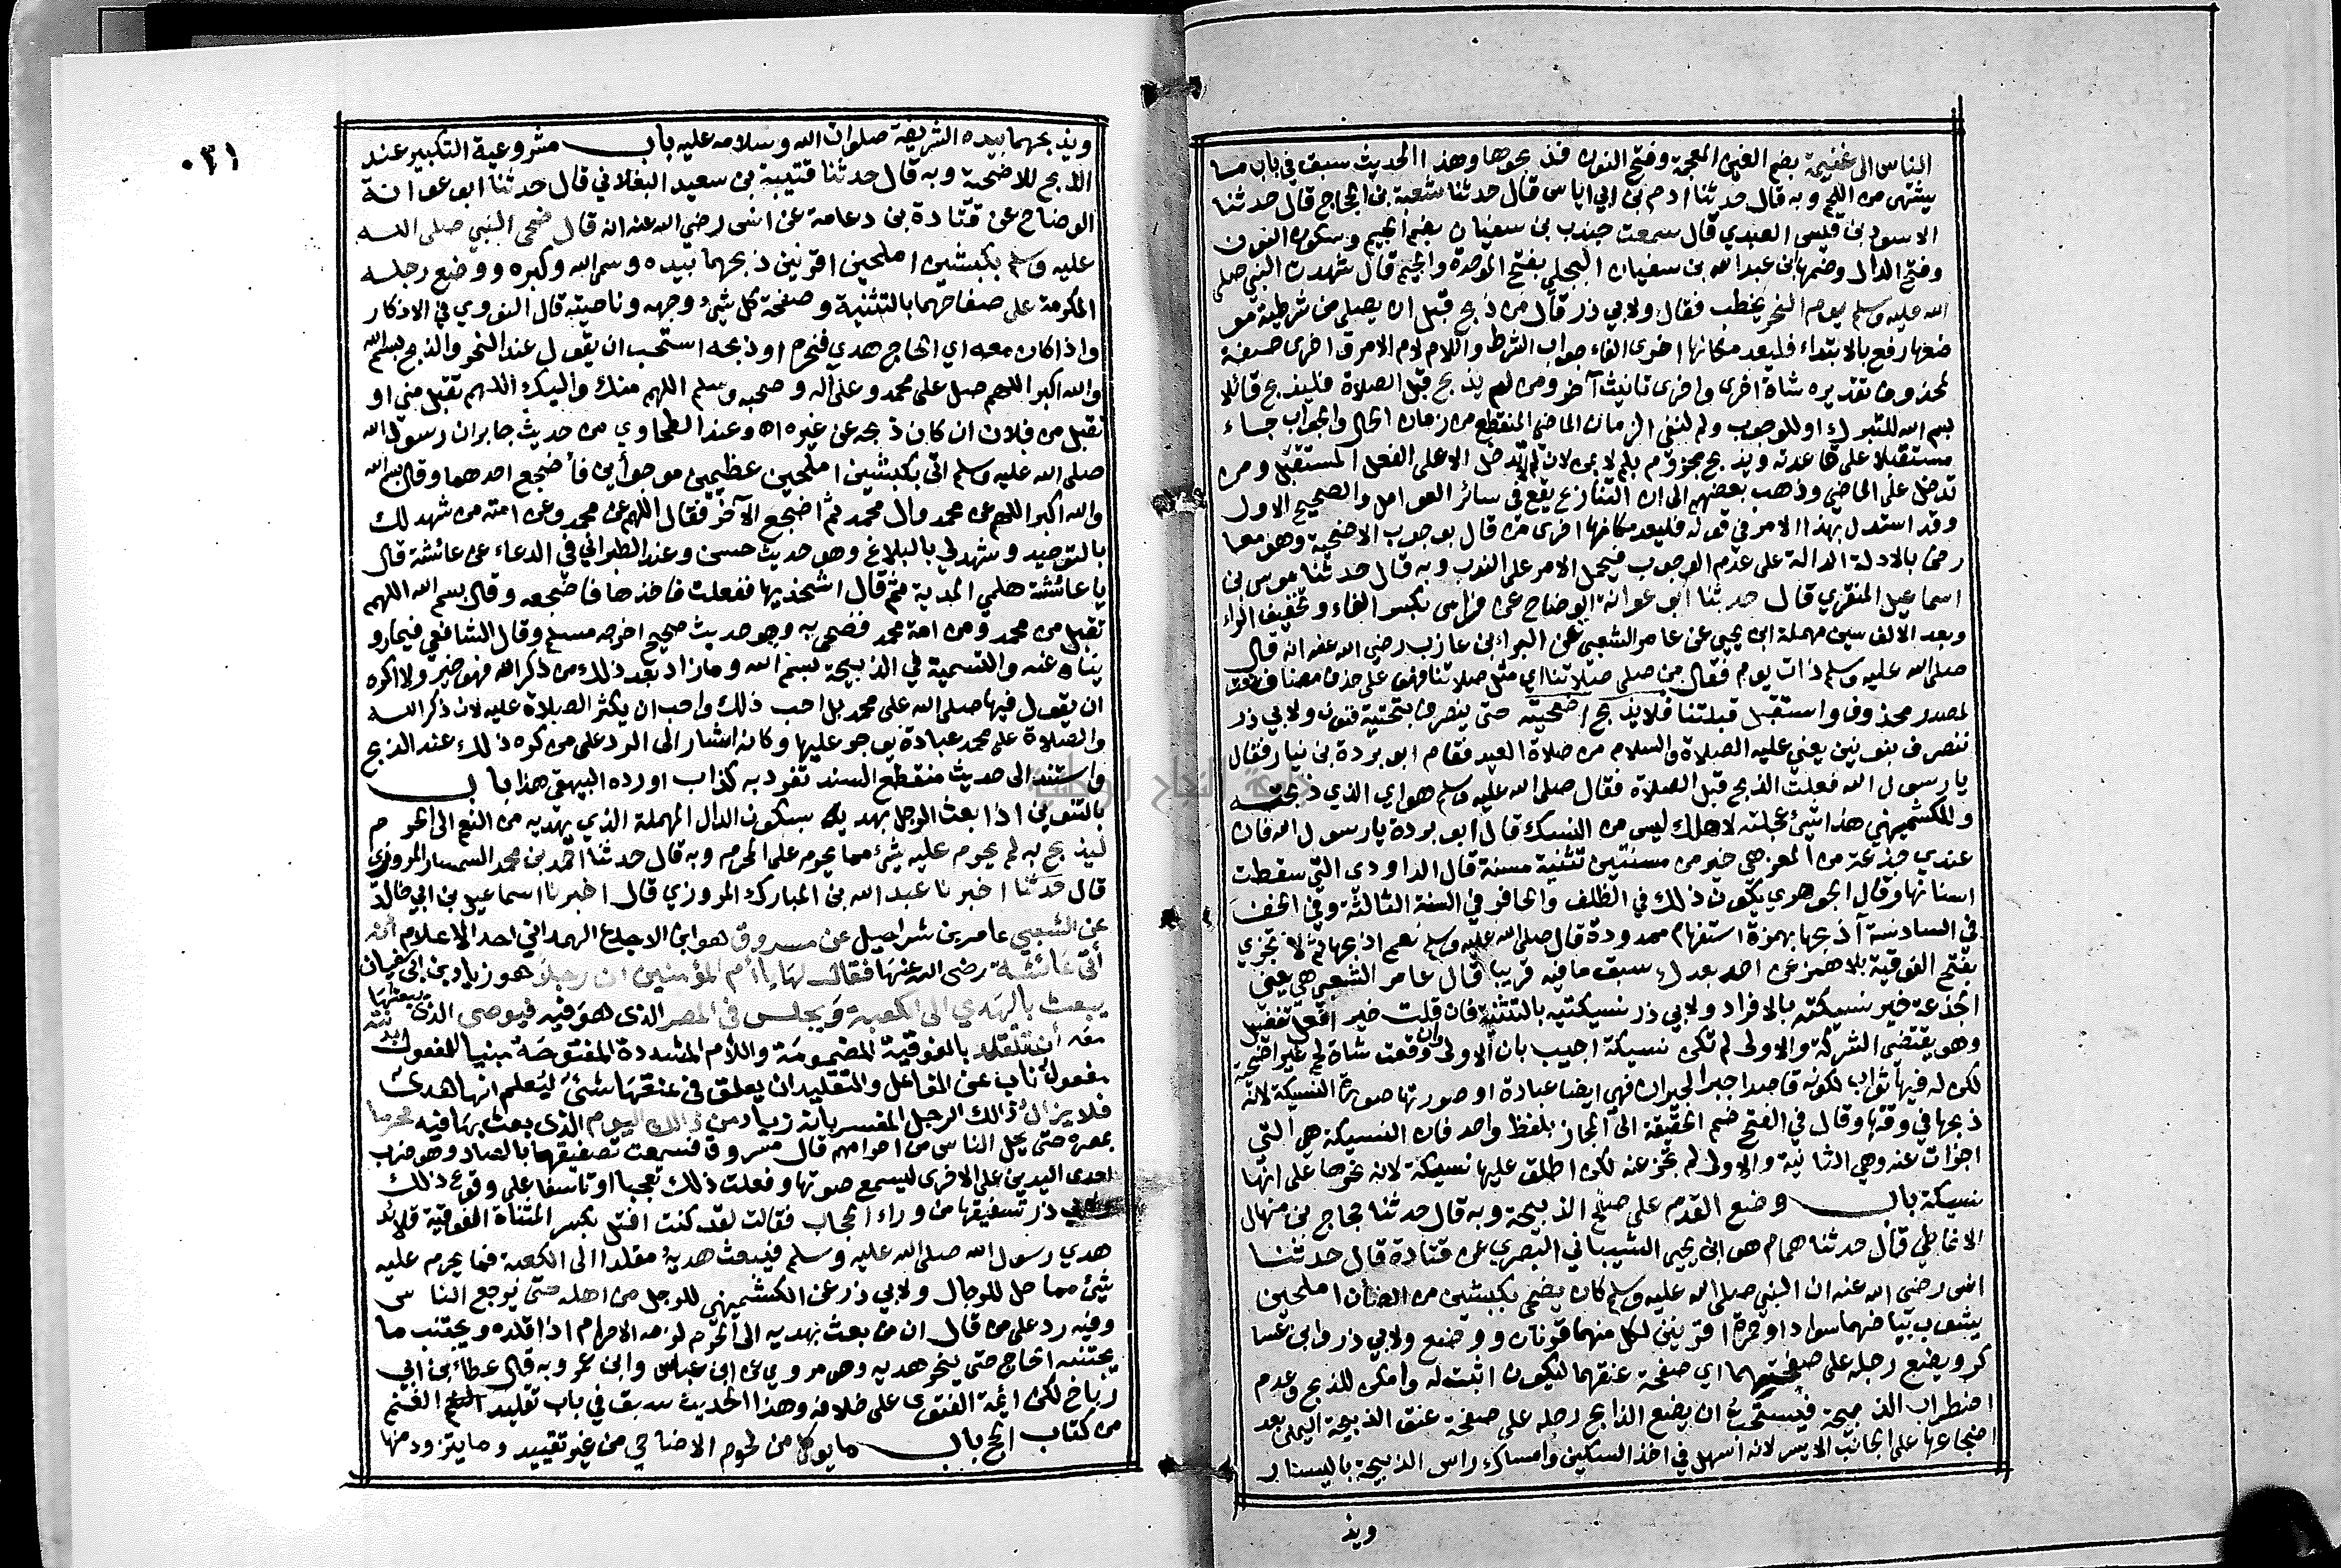 الناس الى غنيمة بضم الغين المعجمة وفتح النون فذبحوها وهذا الحديث سبق في باب ما
يشتهى من اللحم وبه قال حدثنا ادم بن ابي اياس قال حدثنا شعبة بن الحجاج قال حدثنا
الاسود بن قيس العبدي قال سمعت جندب بن سفيان بضم الجيم وسكون النون
وفتح الدال وضمها ابن عبد الله بن سفيان البجلي بفتح الموحدة والجيم قال شهدت النبي صلى
الله عليه وسلم يوم النحر يخطب فقال ولابي ذر قال من ذبح قبل ان يصلي من شرطية مو
ضعها رفع بالابتداء فليعد مكانها اخرى الفاء جواب الشرط واللام لام الامر واخرى صفة
لمحذوف تقديره شاة اخرى واخرى تانيث آخر ومن لم يذبح قبل الصلاة فليذبح قائلا
بسم الله للتبرك او للوجوب ولم لنفي الزمان الماضي المنقطع من زمان الحال والجواب جاء
مستقبلا على قاعدته ويذبح مجزوم بلم لا بمن لان لم لا تدخل الا على الفعل المستقبل ومن
تدخل على الماضي وذهب بعضهم الى ان التنازع يقع في سائر العوامل والصحيح الاول
وقد استدل بهذا الامر في قوله فليعد مكانها اخرى من قال بوجوب الاضحية وهو معا
رض بالادلة الدالة على عدم الوجوب فيحمل الامر على الندب وبه قال حدثنا موسى بن
اسماعيل المنقري قال حدثنا ابو عوانة الوضاح عن فراس بكسر الفاء وتخفيف الراء
وبعد الالف سين مهملة ابن يحيى عن عامر الشعبي عن البراء بن عازب رضي الله عنه انه قال
صلى الله عليه وسلم ذات يوم فقال من صلى صلاتنا اي مثل صلاتنا فهو على حذف مضاف نعت
لمصدر محذوف واستقبل قبلتنا فلا يذبح اضحيته حتى ينصرف بتحتية فنون ولابي ذر
ننصرف بنونين يعني عليه الصلاة والسلام من صلاة العيد فقام ابو بردة بن نيار فقال
يا رسول الله فعلت الذبح قبل الصلاة فقال صلى الله عليه وسلم هو اي الذي ذبحته
وللكشميهني هذا شيء عجلته لاهلك ليس من النسك قال ابو بردة يا رسول الله فان
عندي جذعة من المعز هي خير من مسنتين تثنية مسنة قال الداودي التي سقطت
اسنانها وقال الجوهري يكون ذلك في الظلف والحافر في السنة الثالثة وفي الخف
في السادسة آذبحها بهمزة استفهام ممدودة قال صلى الله عليه وسلم نعم اذبحها ثم لا تجزي
بفتح الفوقية بلا همز عن احد بعدك سبق ما فيه قريبا قال عامر الشعبي هي يعني
الجذعة خير نسيكته بالافراد ولابي ذر نسيكتيه بالتثنية فان قلت خير افعل تفضيل
وهو يقتضي الشركة والاولى لم تكن نسيكة اجيب بان الاولى وان وقعت شاة لحم غير اضحية
لكن له فيها ثواب لكونه قاصدا جبر الجيران فهي ايضا عبادة او صورتها صورة النسيكة لانه
ذبحها في وقتها وقال في الفتح ضم الحقيقة الى المجاز بلفظ واحد فان النسيكة هي التي
اجزات عنه وهي الثانية والاولى لم تجز عنه لكن اطلق عليها نسيكة لانه نحرها على انها
نسيكة باب وضع القدم على صفح الذبيحة وبه قال حدثنا حجاج بن منهال
الانماطي قال حدثنا همام هو ابن يحيى الشيباني البصري عن قتادة قال حدثنا
انس رضي الله عنه ان النبي صلى الله عليه وسلم كان يضحي بكبشين من الضأن املحين
يشوب بياضهما سواد او حمرة اقرنين لكل منهما قرنان ووضع ولابي ذر وابن عسا
كر ويضع رجله على صفحتهما اي صفحة عنقهما ليكون اثبت له وامكن للذبح وعدم
اضطراب الذبيحة فيستحب ان يضع الذابح رجله على صفحة عنق الذبيحة اليمنى بعد
اضجاعها على الجانب الايسر لانه اسهل في اخذ السكين وامساك راس الذبيحة باليسار
ويذ
٠٣١
ويذبحهما بيده الشريفة صلوات الله وسلامه عليه باب مشروعية التكبير عند
الذبح للاضحية وبه قال حدثنا قتيبة بن سعيد البغلاني قال حدثنا ابو عوانة
الوضاح عن قتادة بن دعامة عن انس رضي الله عنه انه قال ضحى النبي صلى الله
عليه وسلم بكبشين املحين اقرنين ذبحهما بيده وسمى الله وكبره ووضع رجله
المكرمة على صفاحهما بالتثنية وصفحة كل شيء وجهه وناحيته قال النووي في الاذكار
واذا كان معه اي الحاج هدي فنحره او ذبحه استحب ان يقول عند النحر والذبح بسم الله
والله اكبر اللهم صل على محمد وعلى آله وصحبه وسلم اللهم منك واليك اللهم تقبل مني او
تقبل من فلان ان كان ذبحه عن غيره اه وعند الطحاوي من حديث جابر ان رسول الله
صلى الله عليه وسلم اتى بكبشين املحين عظيمين موجوأين فأضجع احدهما وقال بسم الله
والله اكبر اللهم عن محمد وال محمد ثم اضجع الآخر فقال اللهم عن محمد وعن امته من شهد لك
بالتوحيد وشهد لي بالبلاغ وهو حديث حسن وعند الطبراني في الدعاء عن عائشة قال
يا عائشة هلمي المدية ثم قال اشحذيها ففعلت فاخذها فاضجعه وقال بسم الله اللهم
تقبل من محمد ومن امة محمد فضحى به وهو حديث صحيح اخرجه مسلم وقال الشافعي فيما رو
يناه عنه والتسمية في الذبيحة بسم الله وما زاد بعد ذلك من ذكر الله فهو خير ولا اكره
ان يقول فيها صلى الله على محمد بل احب ذلك واحب ان يكثر الصلاة عليه لان ذكر الله
والصلاة على محمد عبادة يوجر عليها وكانه اشار الى الرد على من كره ذلك عند الذبح
واستند الى حديث منقطع السند تفرد به كذاب اورده البيهقي هذا باب
بالتنوين اذا بعث الرجل بهديه بسكون الدال المهملة الذي يهديه من النعم الى الحرم
ليذبح به لم يحرم عليه شيء مما يحرم على المحرم وبه قال حدثنا احمد بن محمد السمسار المروزي
قال حدثنا اخبرنا عبد الله بن المبارك المروزي قال اخبرنا اسماعيل بن ابي خالد
عن الشعبي عامر بن شراحيل عن مسروق هو ابن الاجدع الهمداني احد الاعلام أنه
أتى عائشة رضي الله عنها فقال لها يا أم المؤمنين ان رجلا هو زياد بن ابي سفيان
يبعث بالهدي الى الكعبة ويجلس في المصر الذي هو فيه فيوصي الذي يبعثها
معه أن تقلد بالفوقية المضمومة واللام المشددة المفتوحة مبنيا للمفعول بدنته
مفعول ناب عن الفاعل والتقليد ان يعلق في عنقها شئ ليعلم انها هدي
فلا يزال ذلك الرجل المفسر بانه زياد من ذلك اليوم الذي بعث بها فيه محرما
بعمرة حتى يحل الناس من احرامهم قال مسروق فسمعت تصفيقها بالصاد وهو ضرب
احدى اليدين على الاخرى ليسمع صوتها وفعلت ذلك تعجبا او تاسفا على وقوع ذلك
ولابي ذر تسفيقها من وراء الحجاب فقالت لقد كنت افتل بكسر المثناة الفوقية قلائد
هدي رسول الله صلى الله عليه وسلم فيبعث هديه مقلدا الى الكعبة فما يحرم عليه
شيء مما حل للرجال ولابي ذر عن الكشميهني للرجل من اهله حتى يرجع الناس
وفيه رد على من قال ان من بعث بهديه الى الحرم لزمه الاحرام اذا قلده ويجتنب ما
يجتنبه الحاج حتى ينحر هديه وهو مروي عن ابن عباس وابن عمر وبه قال عطاء بن ابي
رباح لكن ائمة الفتوى على خلافه وهذا الحديث سبق في باب تقليد الغنم
من كتاب الحج باب ما يوكل من لحوم الاضاحي من غير تقييد وما يتزود منها